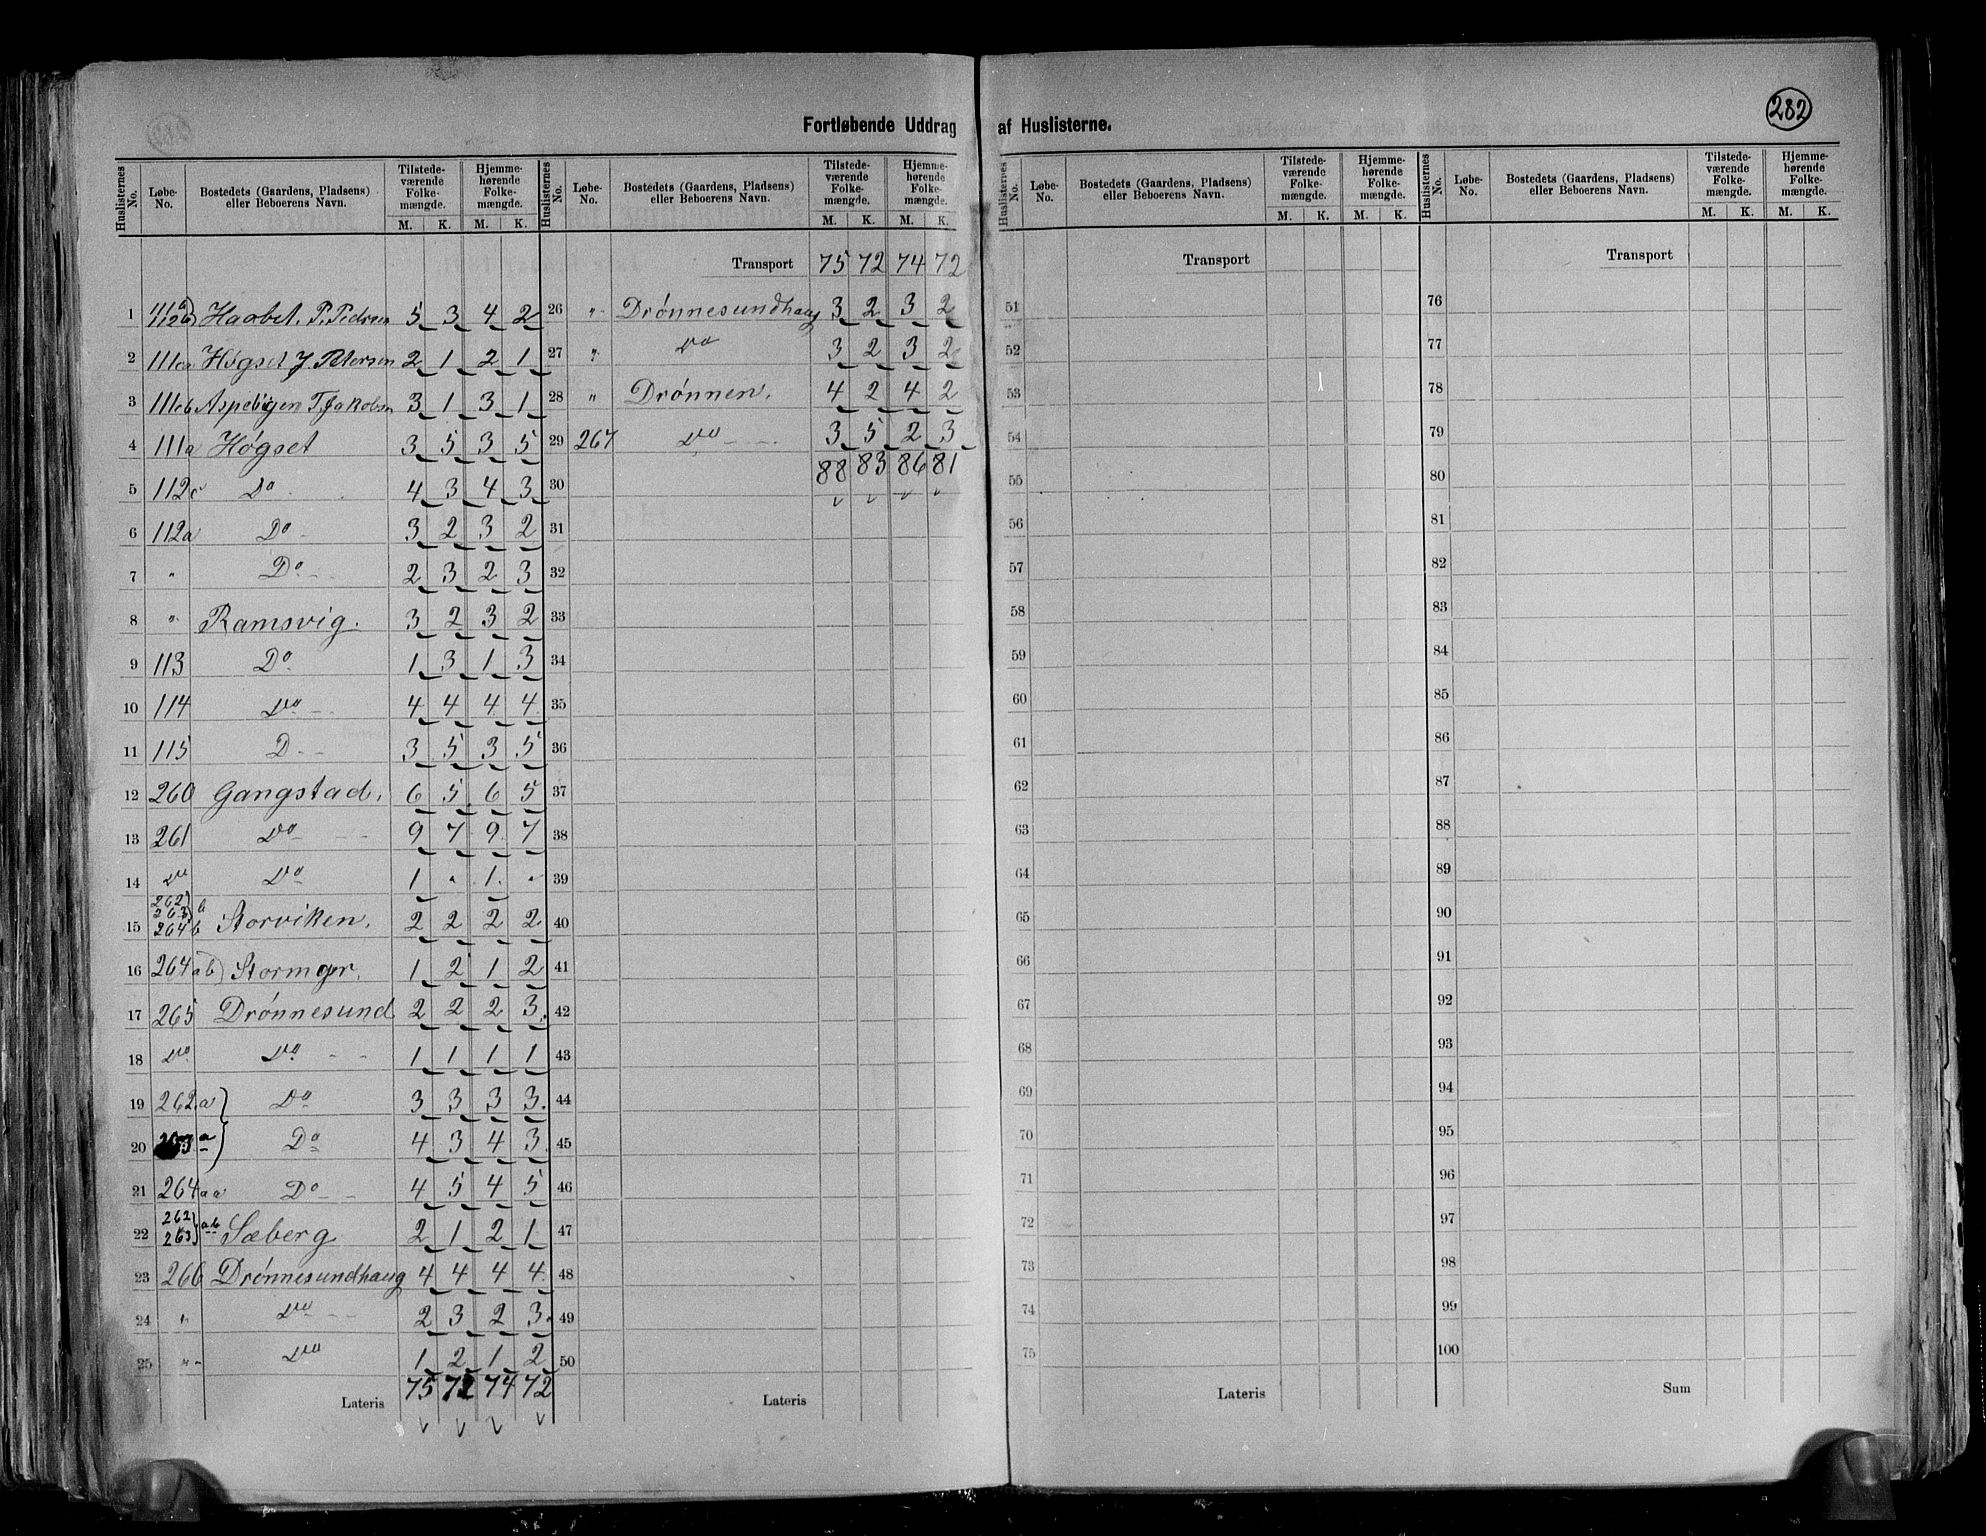 282
Fortløbende Uddrag af Huslisterne.
Huslisternes No. | Løbe-No. | Bostedets (Gaardens, Pladsens) eller Beboerens Navn. | Tilstedeværende Folkemængde. M. K. | Hjemmehørende Folkemængde. M. K.
1 Haabet. P. Pedersen 5 3 4 2
2 111ca Høgset J. Petersen 2 1 2 1
3 111cb T. Jakobsn 3 1 3 1
4 111a Høgset 3 5 3 5
5 112c Do 4 3 4 3
6 112a Do 3 2 3 2
7 " Do 2 3 2 3
8 " Ramsvig. 3 2 3 2
9 113 Do 1 3 1 3
10 114 Do 4 4 4 4
11 115 D 3 5 3 5
12 260 Gangstad. 6 5 6 5
13 261 Do 9 7 9 7
14 Do Do 1 " 1 "
15 262 263 b 264 b Storviken. 2 2 2 2
16 264 ab 1 2 1 2
17 265 Drønnesund 2 2 2 3
18 Do Do 1 1 1 1
19 262 a Do 3 3 3 3
20 263 a Do 4 3 4 3
21 264 aa Do 4 5 4 5
22 262 263 ab Sæberg 2 1 2 1
23 266 Drønnesundhaug 4 4 4 4
24 " Do 2 3 2 3
25 " Do 1 2 1 2
Lateris 75 72 74 72
Huslisternes No. | Løbe-No. | Bostedets (Gaardens, Pladsens) eller Beboerens Navn. | Tilstedeværende Folkemængde. M. K. | Hjemmehørende Folkemængde. M. K.
Transport 75 72 74 72
26 " Drønnesundhaug 3 2 3 2
27 " Do 3 2 3 2
28 " Drønnen. 4 2 4 2
29 267 Do 3 5 2 3
88 83 86 81
30
31
32
33
34
35
36
37
38
39
40
41
42
43
44
45
46
47
48
49
50
Lateris
Huslisternes No. | Løbe-No. | Bostedets (Gaardens, Pladsens) eller Beboerens Navn. | Tilstedeværende Folkemængde. M. K. | Hjemmehørende Folkemængde. M. K.
Transport
51
52
53
54
55
56
57
58
59
60
61
62
63
64
65
66
67
68
69
70
71
72
73
74
75
Lateris
Huslisternes No. | Løbe-No. | Bostedets (Gaardens, Pladsens) eller Beboerens Navn. | Tilstedeværende Folkemængde. M. K. | Hjemmehørende Folkemængde. M. K.
Transport
76
77
78
79
80
81
82
83
84
85
86
87
88
89
90
91
92
93
94
95
96
97
98
99
100
Sum